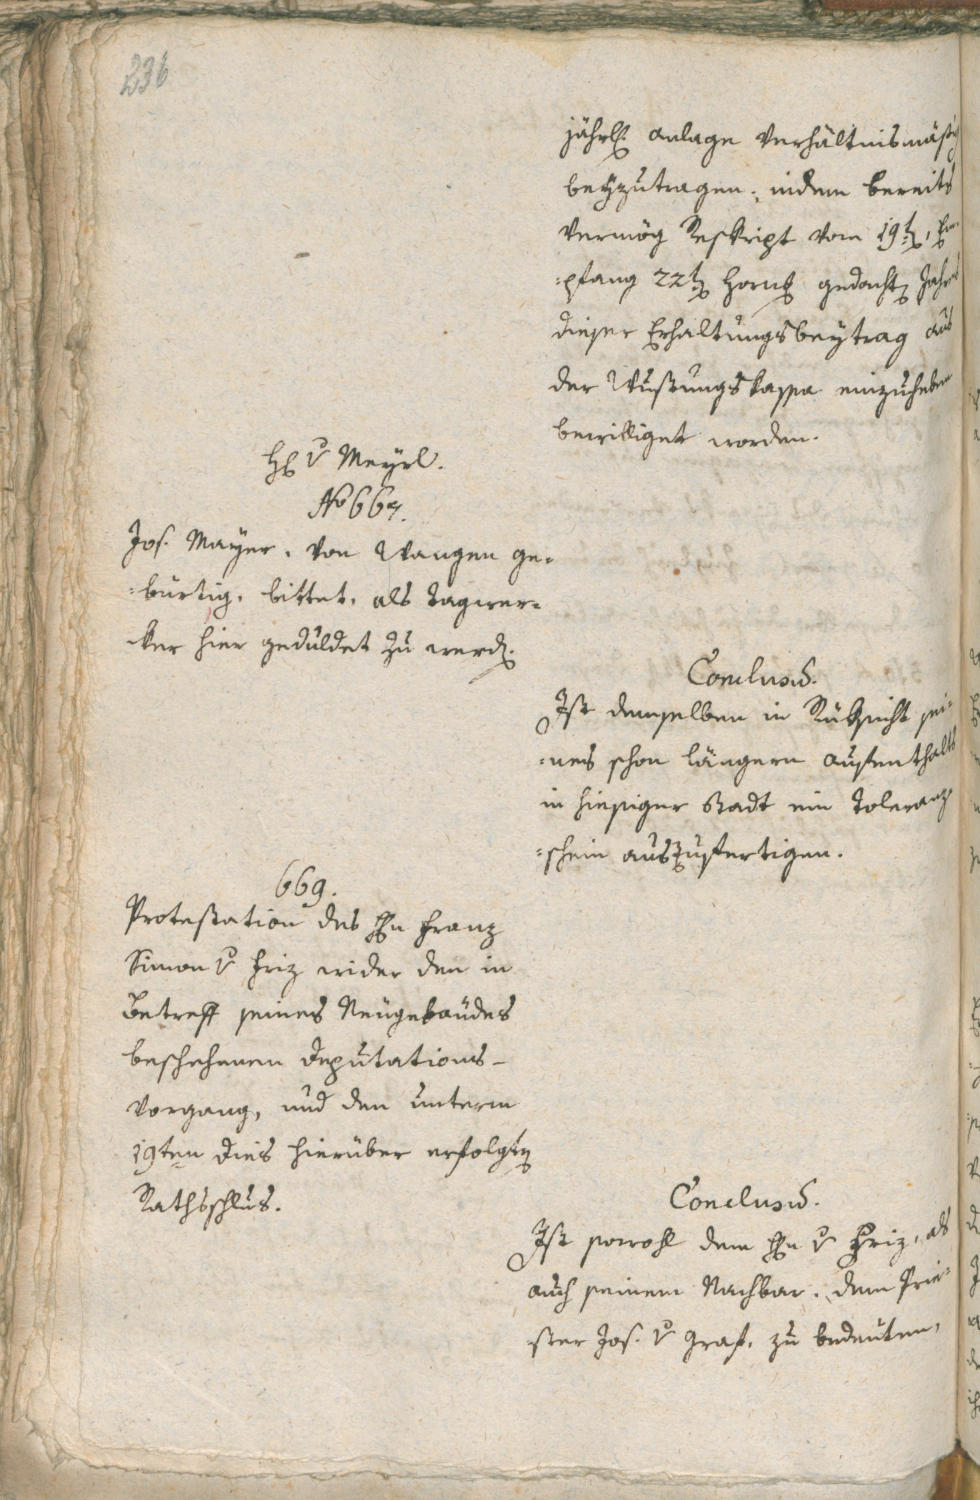 236
jährl. Anlage verhältnismäsig
beyzutragen, indem bereits
vermög Reskript vom 19t, Em-
=pfang 22t Horng gedacht Jahrs
dieser Erhaltungsbeytrag aus
der Wustungskassa einzuheben
bewilliget worden.
H v Meyrl.
No 667.
Jos. Mayer, von Wangen ge=
=bürtig, bittet, als Tagwer=
ker hier geduldet zu werd.
Conclusũ.
Ist demselben in Rüksicht sei-
=nes schon längern Aufenthalts
in hiesiger Stadt ein Toleranz
=schein auszufertigen.
669.
Protestation des Hn Franz
Simon v Friz wider den in
Betreff seines Neugebäudes
beschehenen Deputations-
vorgang, und den unterm
19ten dies hierüber erfolgt
Rathsschlus.
Conclusũ.
Ist sowohl dem Hn v Friz, als
auch seinem Nachbar, dem Prie-
ster Jos. v Graf, zu bedeuten,